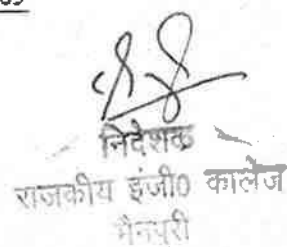 निदेशक
राजकीय इंजी0 कालेज
मैनपुरी